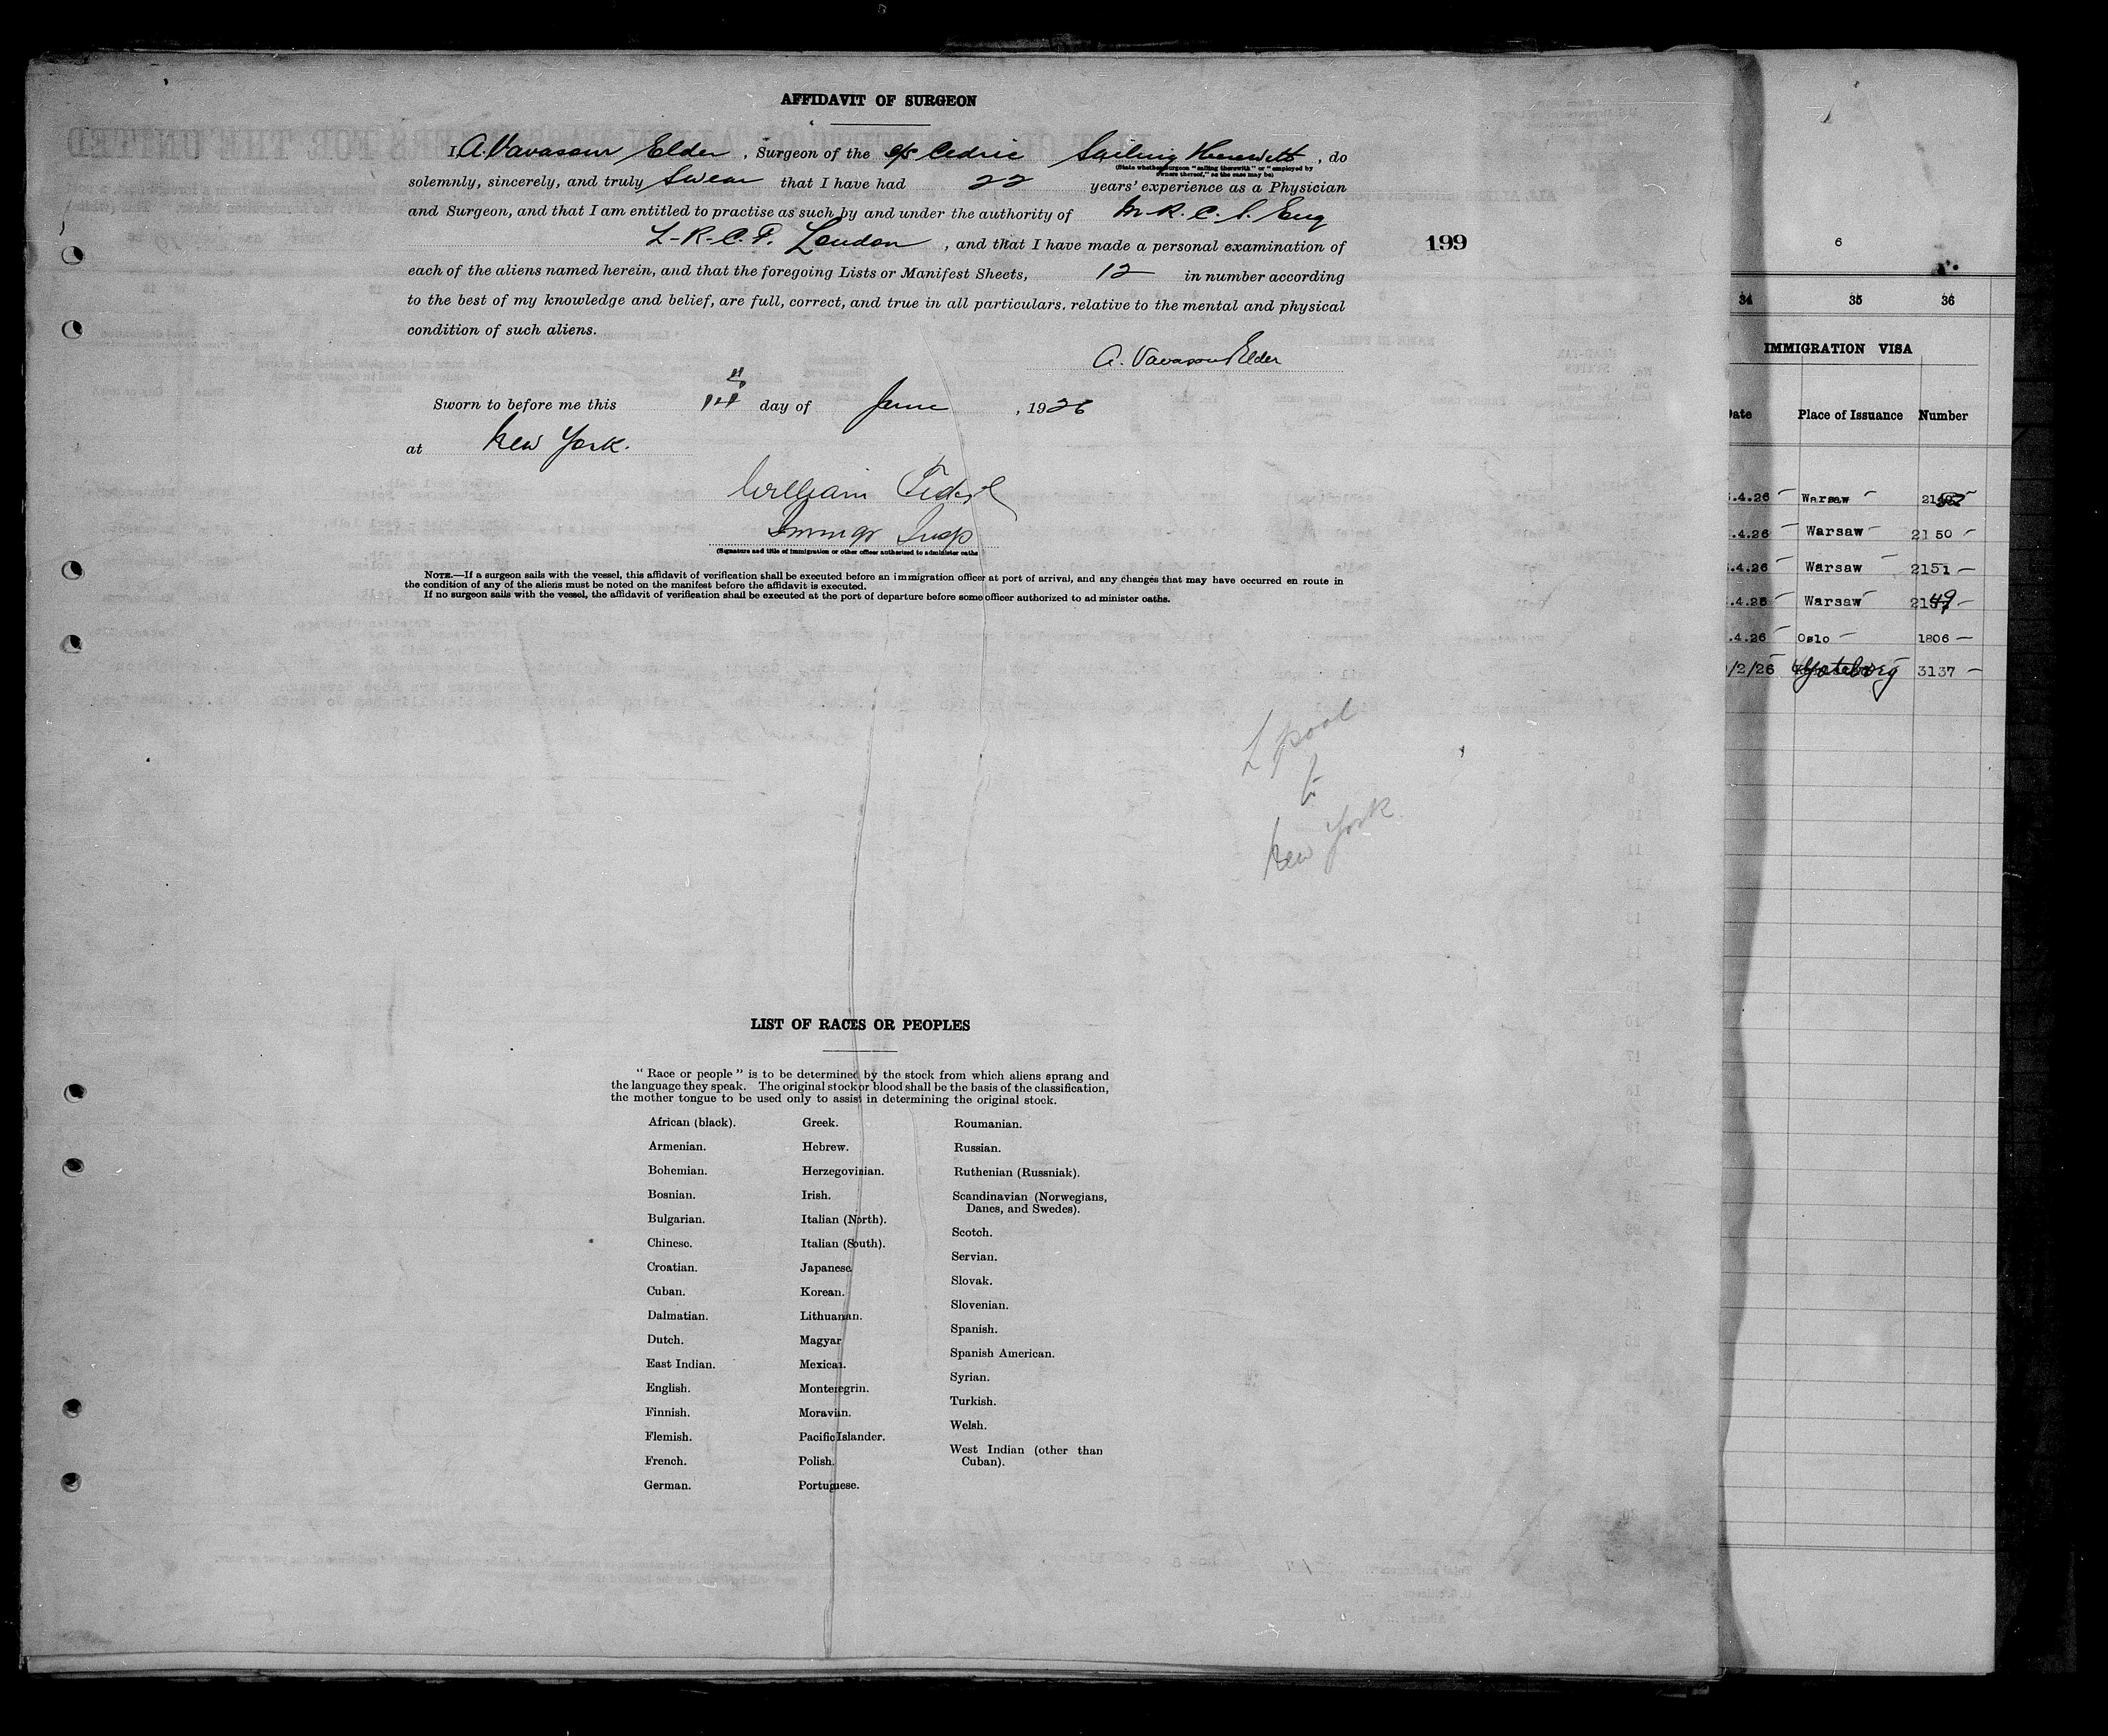 AFFIDAVIT OF SURGEON
I, A. Vavasour Elder, Surgeon of the s/s Cedric Sailing therewith, do
(State whether surgeon "sailing therewith" or "employed by
owners thereof," as the case may be)
solemnly, sincerely, and truly swear that I have had 22 years' experience as a Physician
and Surgeon, and that I am entitled to practise as such by and under the authority of M-R.C.S. Eng
L-R-C.P. London, and that I have made a personal examination of
199
each of the aliens named herein, and that the foregoing Lists or Manifest Sheets, 12 in number according
to the best of my knowledge and belief, are full, correct, and true in all particulars, relative to the mental and physical
condition of such aliens.
A. Vavasour Elder
Sworn to before me this day of June, 1926
at New York.
William
Immgr Insp
(Signature and title of immigration or other officer authorized to administer oaths
NOTE.—If a surgeon sails with the vessel, this affidavit of verification shall be executed before an immigration officer at port of arrival, and any changes that may have occurred en route in
the condition of any of the aliens must be noted on the manifest before the affidavit is executed.
If no surgeon sails with the vessel, the affidavit of verification shall be executed at the port of departure before some officer authorized to administer oaths.
L'pool
to
New York.
LIST OF RACES OR PEOPLES
"Race or people" is to be determined by the stock from which aliens sprang and
the language they speak. The original stock or blood shall be the basis of the classification,
the mother tongue to be used only to assist in determining the original stock.
African (black).
Armenian.
Bohemian.
Bosnian.
Bulgarian.
Chinese.
Croatian.
Cuban.
Dalmatian.
Dutch.
East Indian.
English.
Finnish.
Flemish.
French.
German.
Greek.
Hebrew.
Herzegovinian.
Irish.
Italian (North).
Italian (South).
Japanese.
Korean.
Lithuanian.
Magyar
Mexican.
Montenegrin.
Moravian.
Pacific Islander.
Polish.
Portuguese.
Roumanian.
Russian.
Ruthenian (Russniak).
Scandinavian (Norwegians,
Danes, and Swedes).
Scotch.
Servian.
Slovak.
Slovenian.
Spanish.
Spanish American.
Syrian.
Turkish.
Welsh.
West Indian (other than
Cuban).
6
34 35 36
IMMIGRATION VISA
Date Place of Issuance Number
.4.26 Warsaw
.4.26 Warsaw 2150
.4.26 Warsaw 2151
.4.26 Warsaw 2149
.4.26 Oslo 1806
/2/26 Goteborg 3137